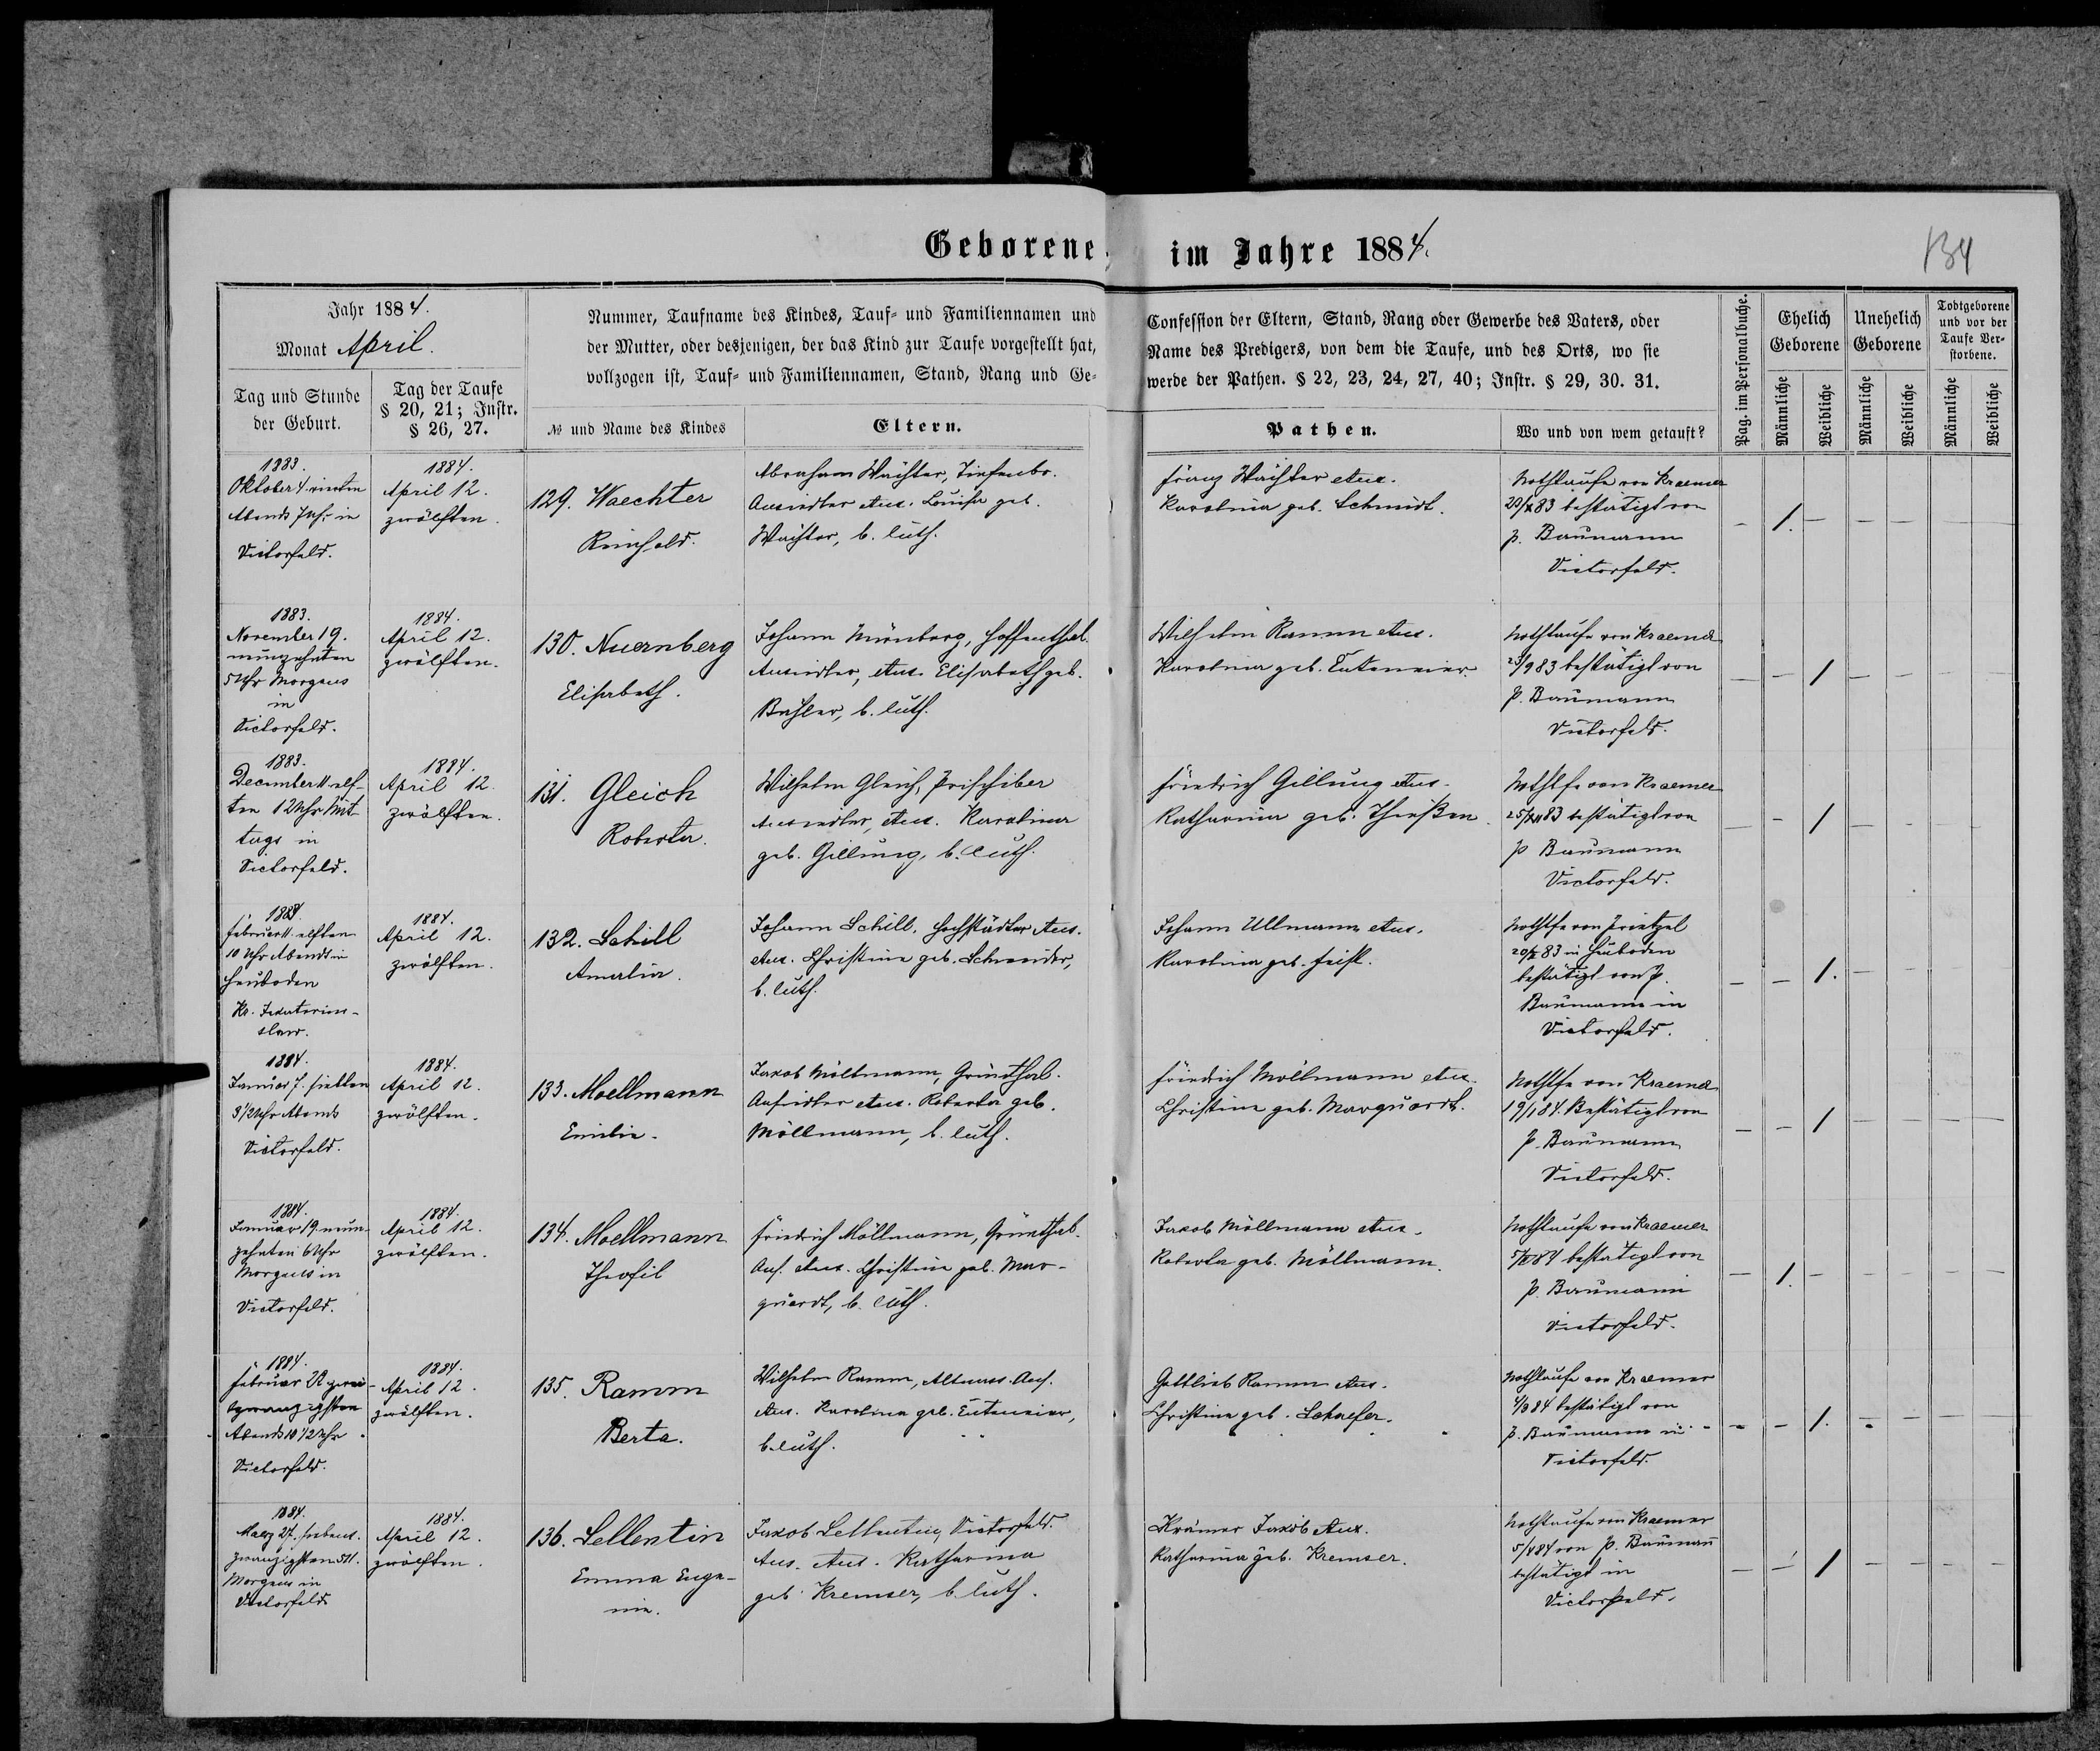 Geborene im Jahre 1884.
134
Jahr 1884.
Monat April.
Tag und Stunde der Geburt.
Tag der Taufe § 20, 21; Instr. § 26, 27.
Nummer, Taufname des Kindes, Tauf- und Familiennamen und
der Mutter, oder desjenigen, der das Kind zur Taufe vorgestellt hat,
vollzogen ist, Tauf- und Familiennamen, Stand, Rang und Ge-
№ und Name des Kindes
Eltern.
Confession der Eltern, Stand, Rang oder Gewerbe des Vaters, oder
Name des Predigers, von dem die Taufe, und des Orts, wo sie
werde der Pathen. § 22, 23, 24, 27, 40; Instr. § 29, 30. 31.
Pathen.
Wo und von wem getauft?
Pag. im Personalbuche.
Ehelich Geborene
Unehelich Geborene
Todtgeborene und vor der Taufe Verstorbene.
Männliche
Weibliche
Männliche
Weibliche
Männliche
Weibliche
1883.
Oktober 4. vierten
Abends 7 Uhr in
Victorfeld.
1884.
April 12.
zwölften.
129. Waechter
Reinhold.
Abraham Wächter, Tiefenbr.
Ansiedler Aus. Louisa geb.
Wächter, b. luth.
Franz Wächter Aus.
Karolina geb. Schmidt.
Nothtaufe von Kraemer
20/X 83 bestätigt von
p. Baumann
Victorfeld.
1883.
November 19.
neunzehnten
5 Uhr Morgens
in
Victorfeld.
1884.
April 12.
zwölften.
130. Nuernberg
Elisabeth.
Johann Nürnberg, Hoffenthal.
Ansiedler, Aus. Elisabeth geb.
b. luth.
Wilhelm Ramm Aus.
Karolina geb. Eutemeier.
Nothtaufe von Kraemer
83 bestätigt von
p. Baumann
Victorfeld.
1883.
December 11. elf-
ten 12 Uhr Mit-
tags in
Victorfeld.
1884.
April 12.
zwölften.
131. Gleich
Roberta.
Wilhelm Gleich, Prischiber
Ansiedler, Aus. Karolina
geb. Gillung, b. luth.
Friedrich Gillung Aus.
Katharina geb. Thießen.
Nothtfe von Kraemer
25/XII 83 bestätigt von
p Baumann
Victorfeld.
1884.
Februar 11. elften
10 Uhr Abends in
Heuboden
Kr. Jekaterino-
slaw.
1884.
April 12.
zwölften.
132. Schill
Amalia.
Johann Schill, Hochstädter Aus.
Aus. Christine geb. Schneider,
b. luth.
Johann Ullmann Aus.
Karolina geb. Feist.
Nothtfe von Prietzel
20/II 83 in Heuboden
bestätigt von p.
Baumann in
Victorfeld.
1884.
Januar 7. siebten
8 1/2 Uhr Abends
Victorfeld.
1884.
April 12.
zwölften.
133. Moellmann
Emilie.
Jakob Möllmann, Grünthal.
Ansiedler Aus. Roberta geb.
Möllmann, b. luth.
Friedrich Möllmann Aus.
Christine geb. Marquardt.
Nothtfe von Kraemer
19/I 84. Bestätigt von
p. Baumann
Victorfeld.
1884.
Januar 19. neun-
zehnten 6 Uhr
Morgens in
Victorfeld.
1884.
April 12.
zwölften.
134. Moellmann
Theofil
Friedrich Möllmann, Grünthal.
Ans. Aus. Christine geb. Mar-
quardt, b. luth.
Jakob Möllmann Aus.
Roberta geb. Möllmann.
Nothtaufe von Kraemer
5/II 84 bestätigt von
p. Baumann
Victorfeld.
1884.
Februar 22 zwei-
zwanzigsten
Abends 10 1/2 Uhr
Victorfeld.
1884.
April 12.
zwölften.
135. Ramm
Berta.
Wilhelm Ramm, Altnass. Ans.
Aus. Karolina geb. Eutemeier,
b. luth.
Gottlieb Ramm Aus.
Christine geb. Schaefer.
Nothtaufe von Kraemer
4/3 84 bestätigt von
p. Baumann in
Victorfeld.
1884.
Maerz 27. siebenu.
zwanzigsten 5 U.
Morgens in
Victorfeld
1884.
April 12.
zwölften.
136. Sellentin
Emma Euge-
nie.
Jakob Sellentin, Victorfeld.
Ans. Aus. Katharina
geb. Kremser, b. luth.
Krämer Jakob Aus.
Katharina geb. Kremser.
Nothtaufe von Kraemer
5/4 84 von p. Baumann
bestätigt in
Victorfeld.